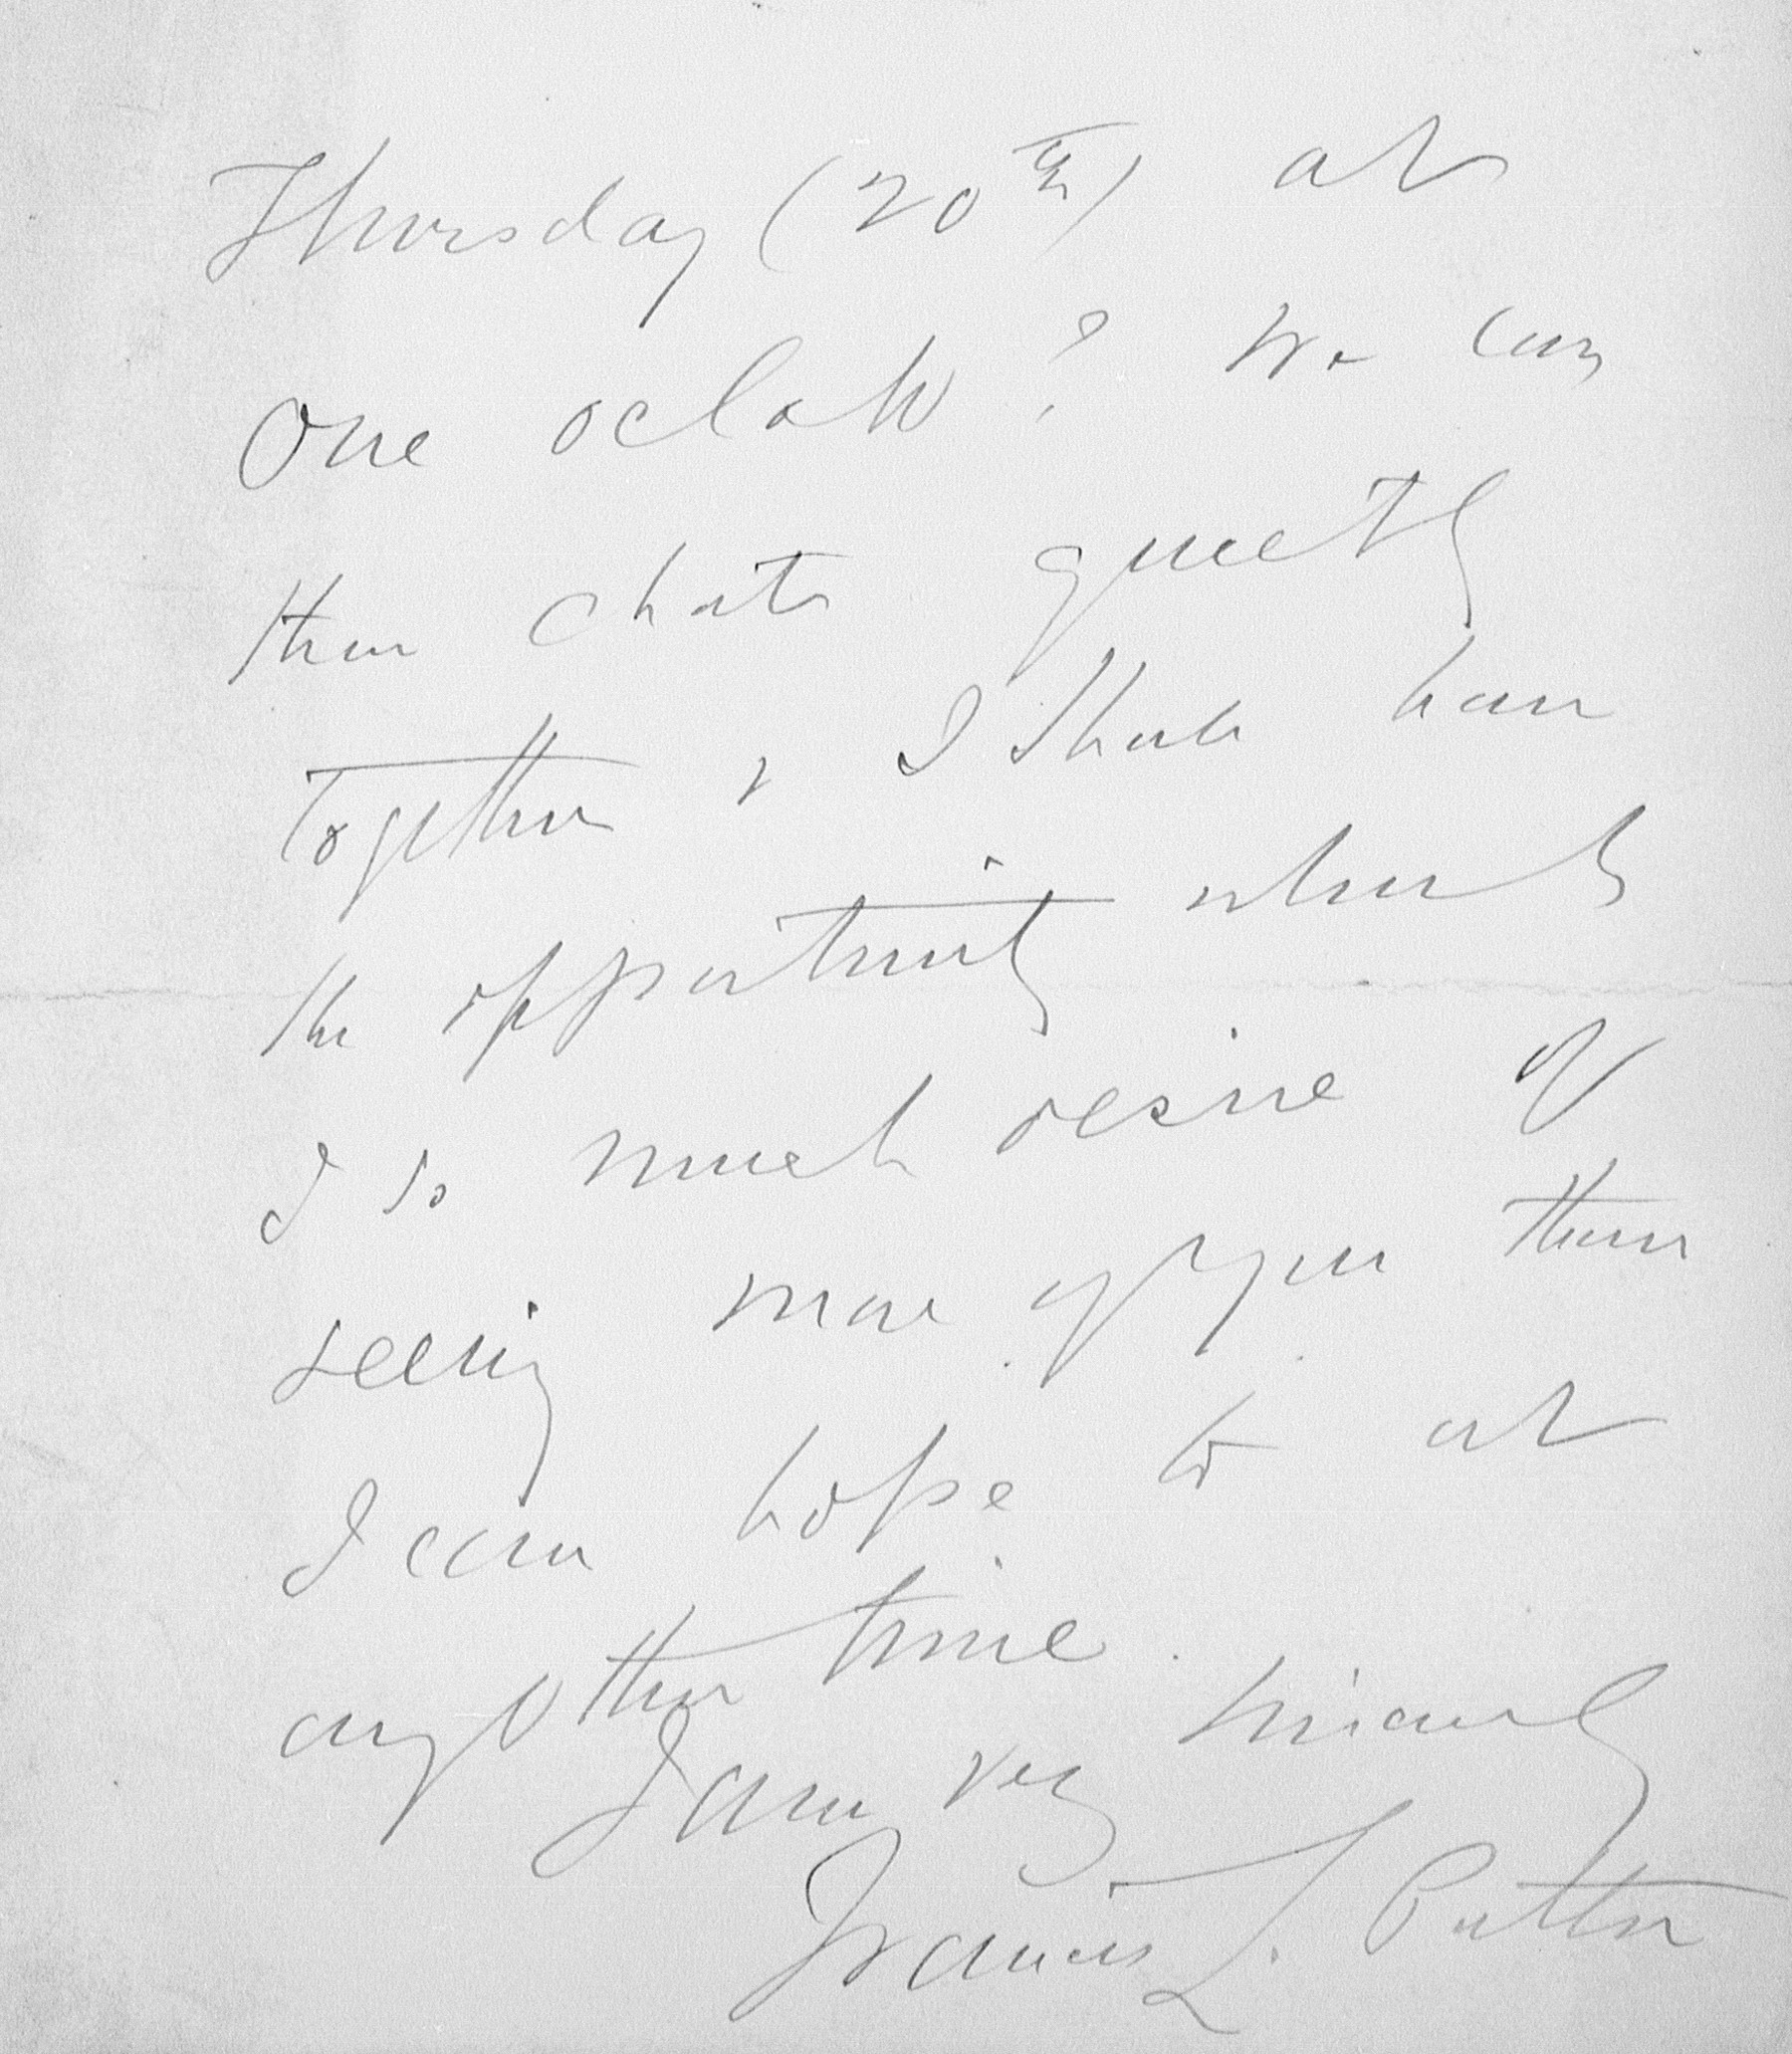 Thursday (20th) at
One oclock? We can
then chat quietly
together & I shall have
the opportunity which
I so much desire of
seeing more of you than
I can hope to at
any other time.
I am very sincerely
Francis L. Patton